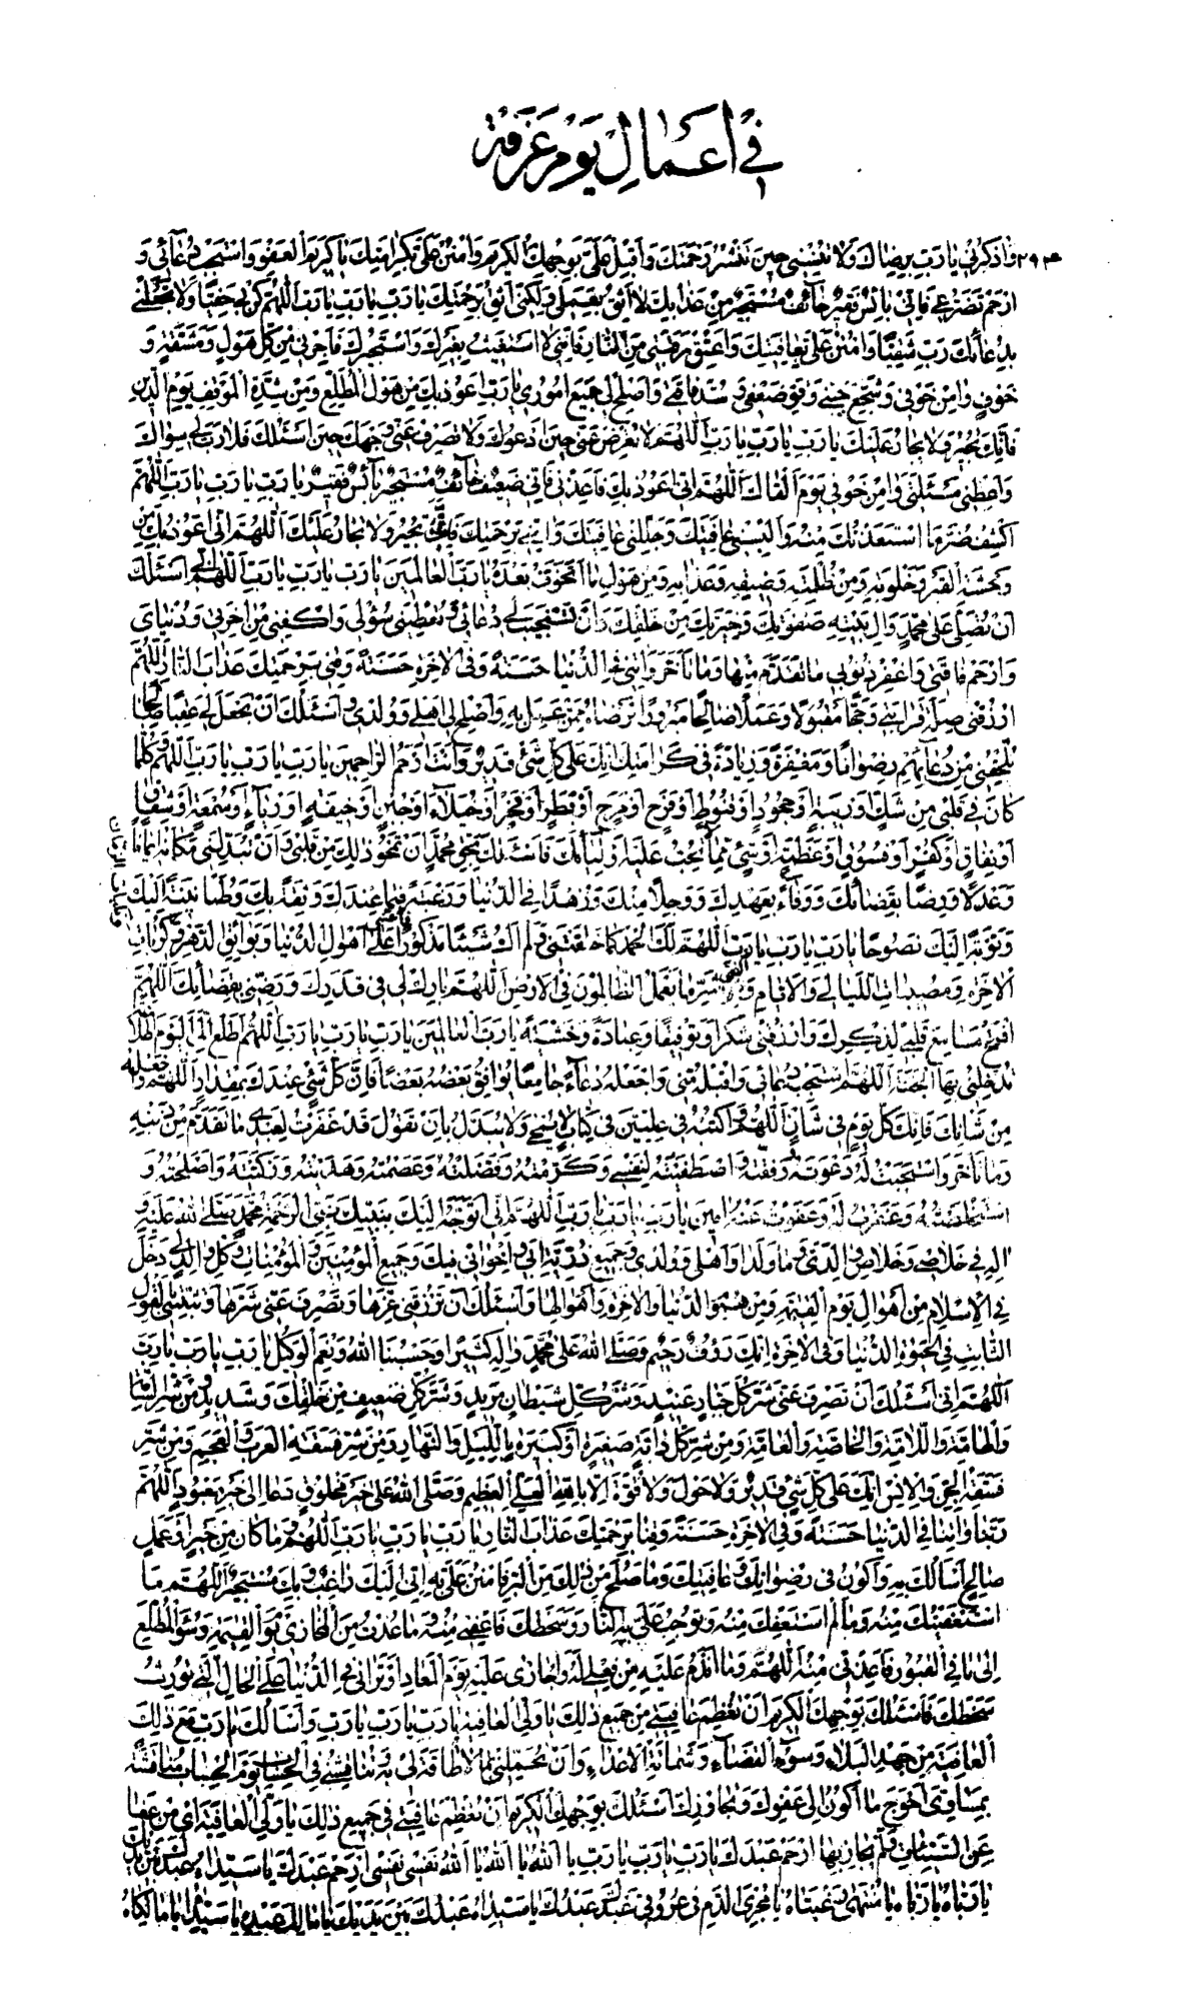 في أعمال يوم عرفة
٢٩٣ واذكرني يا رب برضاك ولا تنسني حين تنشر رحمتك وأقبل علي بوجهك الكريم وامنن علي بكرامتك يا كريم العفو واستجب دعائي و
ارحم تضرعي فاني بائس فقير خائف مستجير من عذابك لا أثق بعملي ولكني أثق برحمتك يا رب يا رب يا رب اللهم كن بي حفيا ولا تجعلني
بدعائك رب شقيا وامنن علي بعافيتك وأعتق رقبتي من النار فاني لا أستغيث بغيرك وأستجيرك فأجرني من كل هول ومشقة و
خوف وآمن خوفي وشجع جبني وقو ضعفي وسد فاقتي وأصلح لي جميع أموري يا رب أعوذ بك من هول المطلع ومن شدة الموقف يوم الدين
فانك تجير ولا يجار عليك يا رب يا رب يا رب اللهم لا تعرض عني حين أدعوك ولا تصرف عني وجهك حين أسئلك فلا رب لي سواك
وأعطني مسئلتي وآمن خوفي يوم ألقاك اللهم اني أعوذ بك فأعذني فاني ضعيف خائف مستجير بائس فقير يا رب يا رب يا رب اللهم
اكشف ضر ما استعذتك منه وألبسني عافيتك وجللني عافيتك وآمني برحمتك فانك تجير ولا يجار عليك اللهم اني أعوذ بك من
وحشة القبر وخلوته ومن ظلمته وضيقه وعذابه ومن هول ما أتخوف بعده يا رب العالمين يا رب يا رب يا رب اللهم اني أسئلك
أن تصلي على محمد وآل بيته صفوتك وخيرتك من خلقك وأن تستجيب لي دعائي وتعطيني سؤلي واكفني من آخرتي ودنياي
وارحم فاقتي واغفر ذنوبي ما تقدم منها وما تأخر وآتني في الدنيا حسنة وفي الآخرة حسنة وقني برحمتك عذاب النار اللهم
ارزقني صلة قرابتي وحجا مقبولا وعملا صالحا مبرورا ترضاه ممن عمل به وأصلح لي أهلي وولدي وأسئلك أن تجعل لي عقبا صالحا
تلحقني من دعائهم رضوانا ومغفرة وزيادة في كرامتك انك على كل شئ قدير وأنت أرحم الراحمين يا رب يا رب يا رب اللهم وكلما
كان في قلبي من شك وريبة أو جحود أو قنوط أو فرح أو مرح أو بطر أو فخر أو خيلاء أو جبن أو خيفة أو رياء أو سمعة أو شقاق
أو نفاق أو كفر أو فسوق أو عظمة أو شئ مما لا يحب عليه أوليائك فأسئلك بحق محمد أن تمحو ذلك من قلبي وأن تبدلني مكانه ايمانا
وعدلا ورضا بقضائك ووفاء بعهدك ووجلا منك وزهدا في الدنيا ورغبة فيما عندك وثقة بك وطمأنينة اليك
وتوبة اليك نصوحا يا رب يا رب يا رب اللهم لك الحمد كما خلقتني ولم أك شيئا مذكورا فأعني على أهوال الدنيا وبوائق الدهر وكربات
الآخرة ومصيبات الليالي والأيام واكفني شر ما يعمل الظالمون في الأرض اللهم بارك لي في قدرك ورضني بقضائك اللهم
افتح مسامع قلبي لذكرك وارزقني شكرا وتوفيقا وعبادة وخشية يا رب العالمين يا رب يا رب يا رب اللهم اطلع الي اليوم اطلاعة
تدخلني بها الجنة اللهم استجب دعائي واقبله مني واجعله دعاء جامعا يوافق بعضه بعضا فان كل شئ عندك بمقدار اللهم واجعله
من شأنك فانك كل يوم في شأن اللهم واكتبه في عليين في كتاب لا يمحى ولا يبدل بأن تقول قد غفرت لعبدي ما تقدم من ذنبه
وما تأخر واستجبت له دعوته ووفقته واصطفيته لنفسي وكرمته وفضلته وعصمته وهديته وزكيته وأصلحته و
استخلصته وغفرت له وعفوت عنه آمين يا رب يا رب يا رب اللهم اني أتوجه اليك بنبيك نبي الرحمة محمد صلى الله عليه و
آله في خلاصي وخلاص والدي وما ولدا وأهلي وولدي وجميع ذرية أبي واخواني فيك وجميع المؤمنين والمؤمنات وكل والد لي دخل
في الاسلام من أهوال يوم القيمة ومن هموم الدنيا والآخرة وأهوالها وأسئلك أن ترزقني عزها وتصرف عني شرها وتثبتني بالقول
الثابت في الحيوة الدنيا وفي الآخرة انك رؤف رحيم وصلى الله على محمد وآله كثيرا وحسبنا الله ونعم الوكيل يا رب يا رب يا رب
اللهم اني أسئلك أن تصرف عني شر كل جبار عنيد وشر كل شيطان مريد وشر كل ضعيف من خلقك وشديد ومن شر السامة
والهامة واللامة والخاصة والعامة ومن شر كل دابة صغيرة أو كبيرة بالليل والنهار ومن شر فسقة العرب والعجم ومن شر
فسقة الجن والانس انك على كل شئ قدير ولا حول ولا قوة الا بالله العلي العظيم وصلى الله على خير مخلوق دعا الى خير معبود اللهم
ربنا وآتنا في الدنيا حسنة وفي الآخرة حسنة وقنا برحمتك عذاب النار يا رب يا رب يا رب اللهم وما كان من خير أو عمل
صالح أسألك به وأكون في رضوانك وعافيتك وما صلح من ذلك من البر فامنن علي به اني اليك راغب وبك مستجير اللهم ما
استعفيتك منه وما لم أستعفك منه وتوجب علي به النار وسخطك فاعفني منه وما عذت من المخازي يوم القيمة وسوء المطلع
الى ما في القبور فأعذني منه اللهم وما أندم عليه من فعلي له وأجازى عليه يوم المعاد أو تراني في الدنيا على الحال التي تورث
سخطك فأسئلك بوجهك الكريم أن تعظم عافيتي من جميع ذلك يا ولي العافية يا رب يا رب يا رب وأسألك يا رب مع ذلك
العافية من جهد البلاء وسوء القضاء وشماتة الأعداء وأن تحملني ما لا طاقة لي به وتناقشني في الحساب يوم الحساب مناقشة
بمساوي أحوج ما أكون الى عفوك وتجاوزك أسئلك بوجهك الكريم أن تعظم عافيتي في جميع ذلك يا ولي العافية أي من عفا
عن السيئات فلم يجاز بها ارحم عبدك يا رب يا رب يا رب يا الله يا الله يا الله نفسي نفسي ارحم عبدك يا سيداه عبدك بين يديك
يا رباه يا رباه يا منتهى رغبتاه يا مجري الدم في عروقي عبدك عبدك يا سيداه عبدك بين يديك يا مالك عبده يا سيداه يا مالكاه